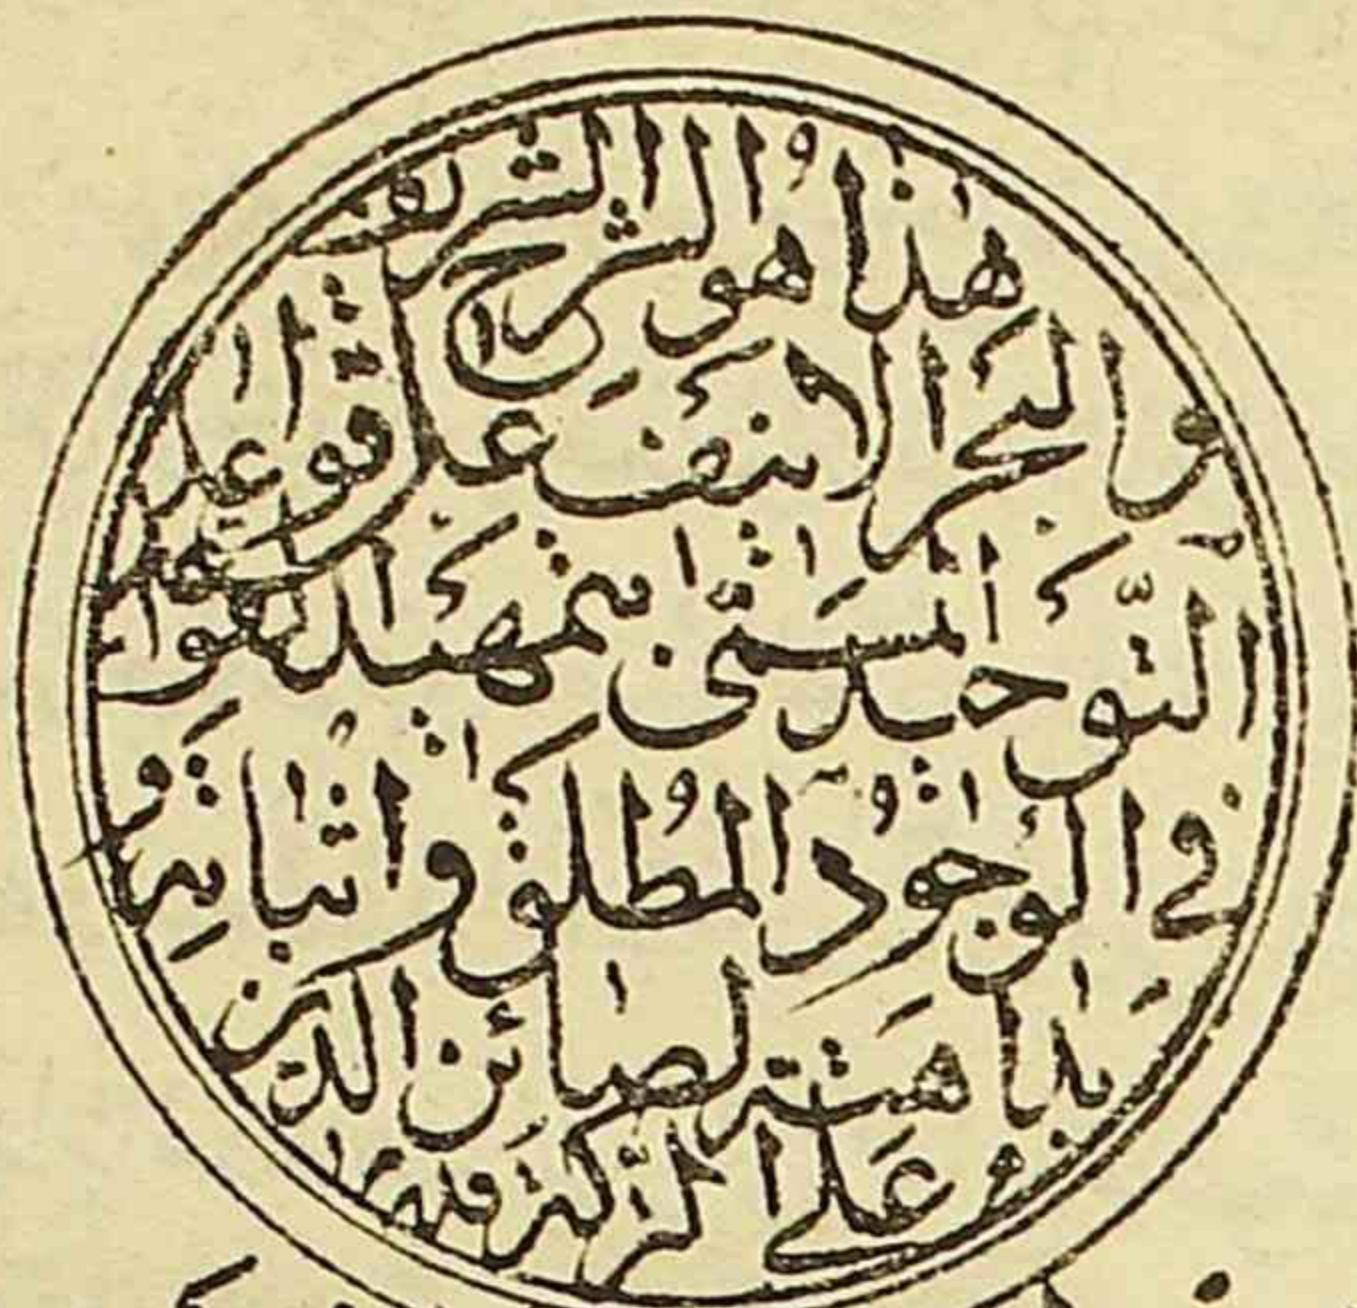 هذا هو الشرح الشريف
والبحر الا على قواعد
التوحيد المسمى بتمهيد القواعد
في الوجود المطلق واثباته و
بداهته لصائن الدين
على التركه